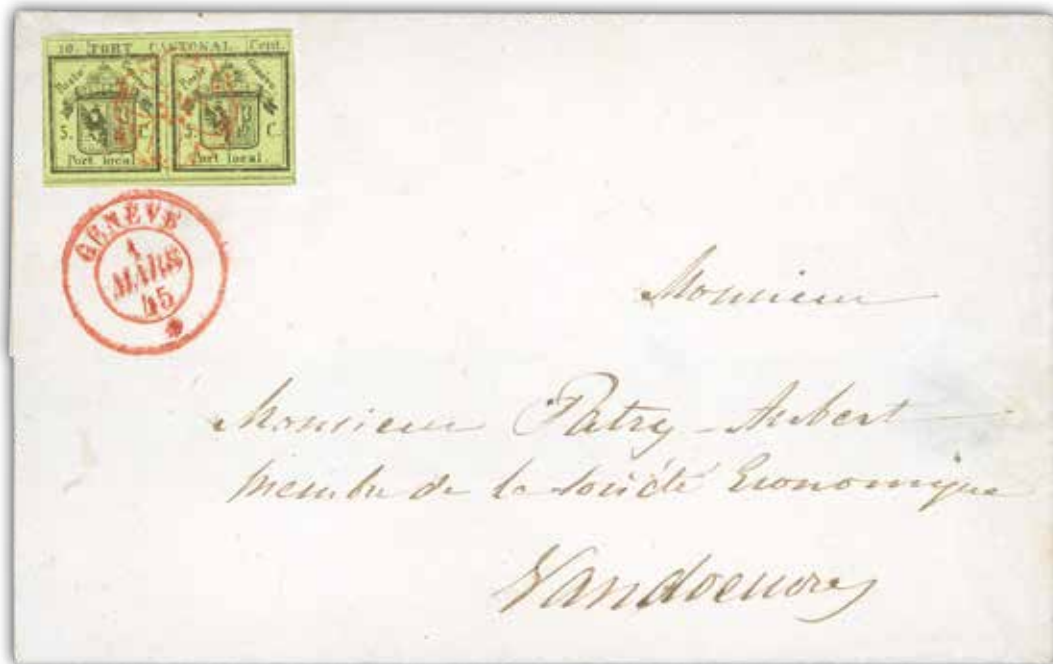 10. PORT CANTONAL Cent.
Poste Genève Poste Genève
5. C. 5. C.
Port local. Port local.
GENÈVE
1
MARS
45
Monsieur
Monsieur Patry-Aubert
Membre de la Société Economique
Vandoeuvres